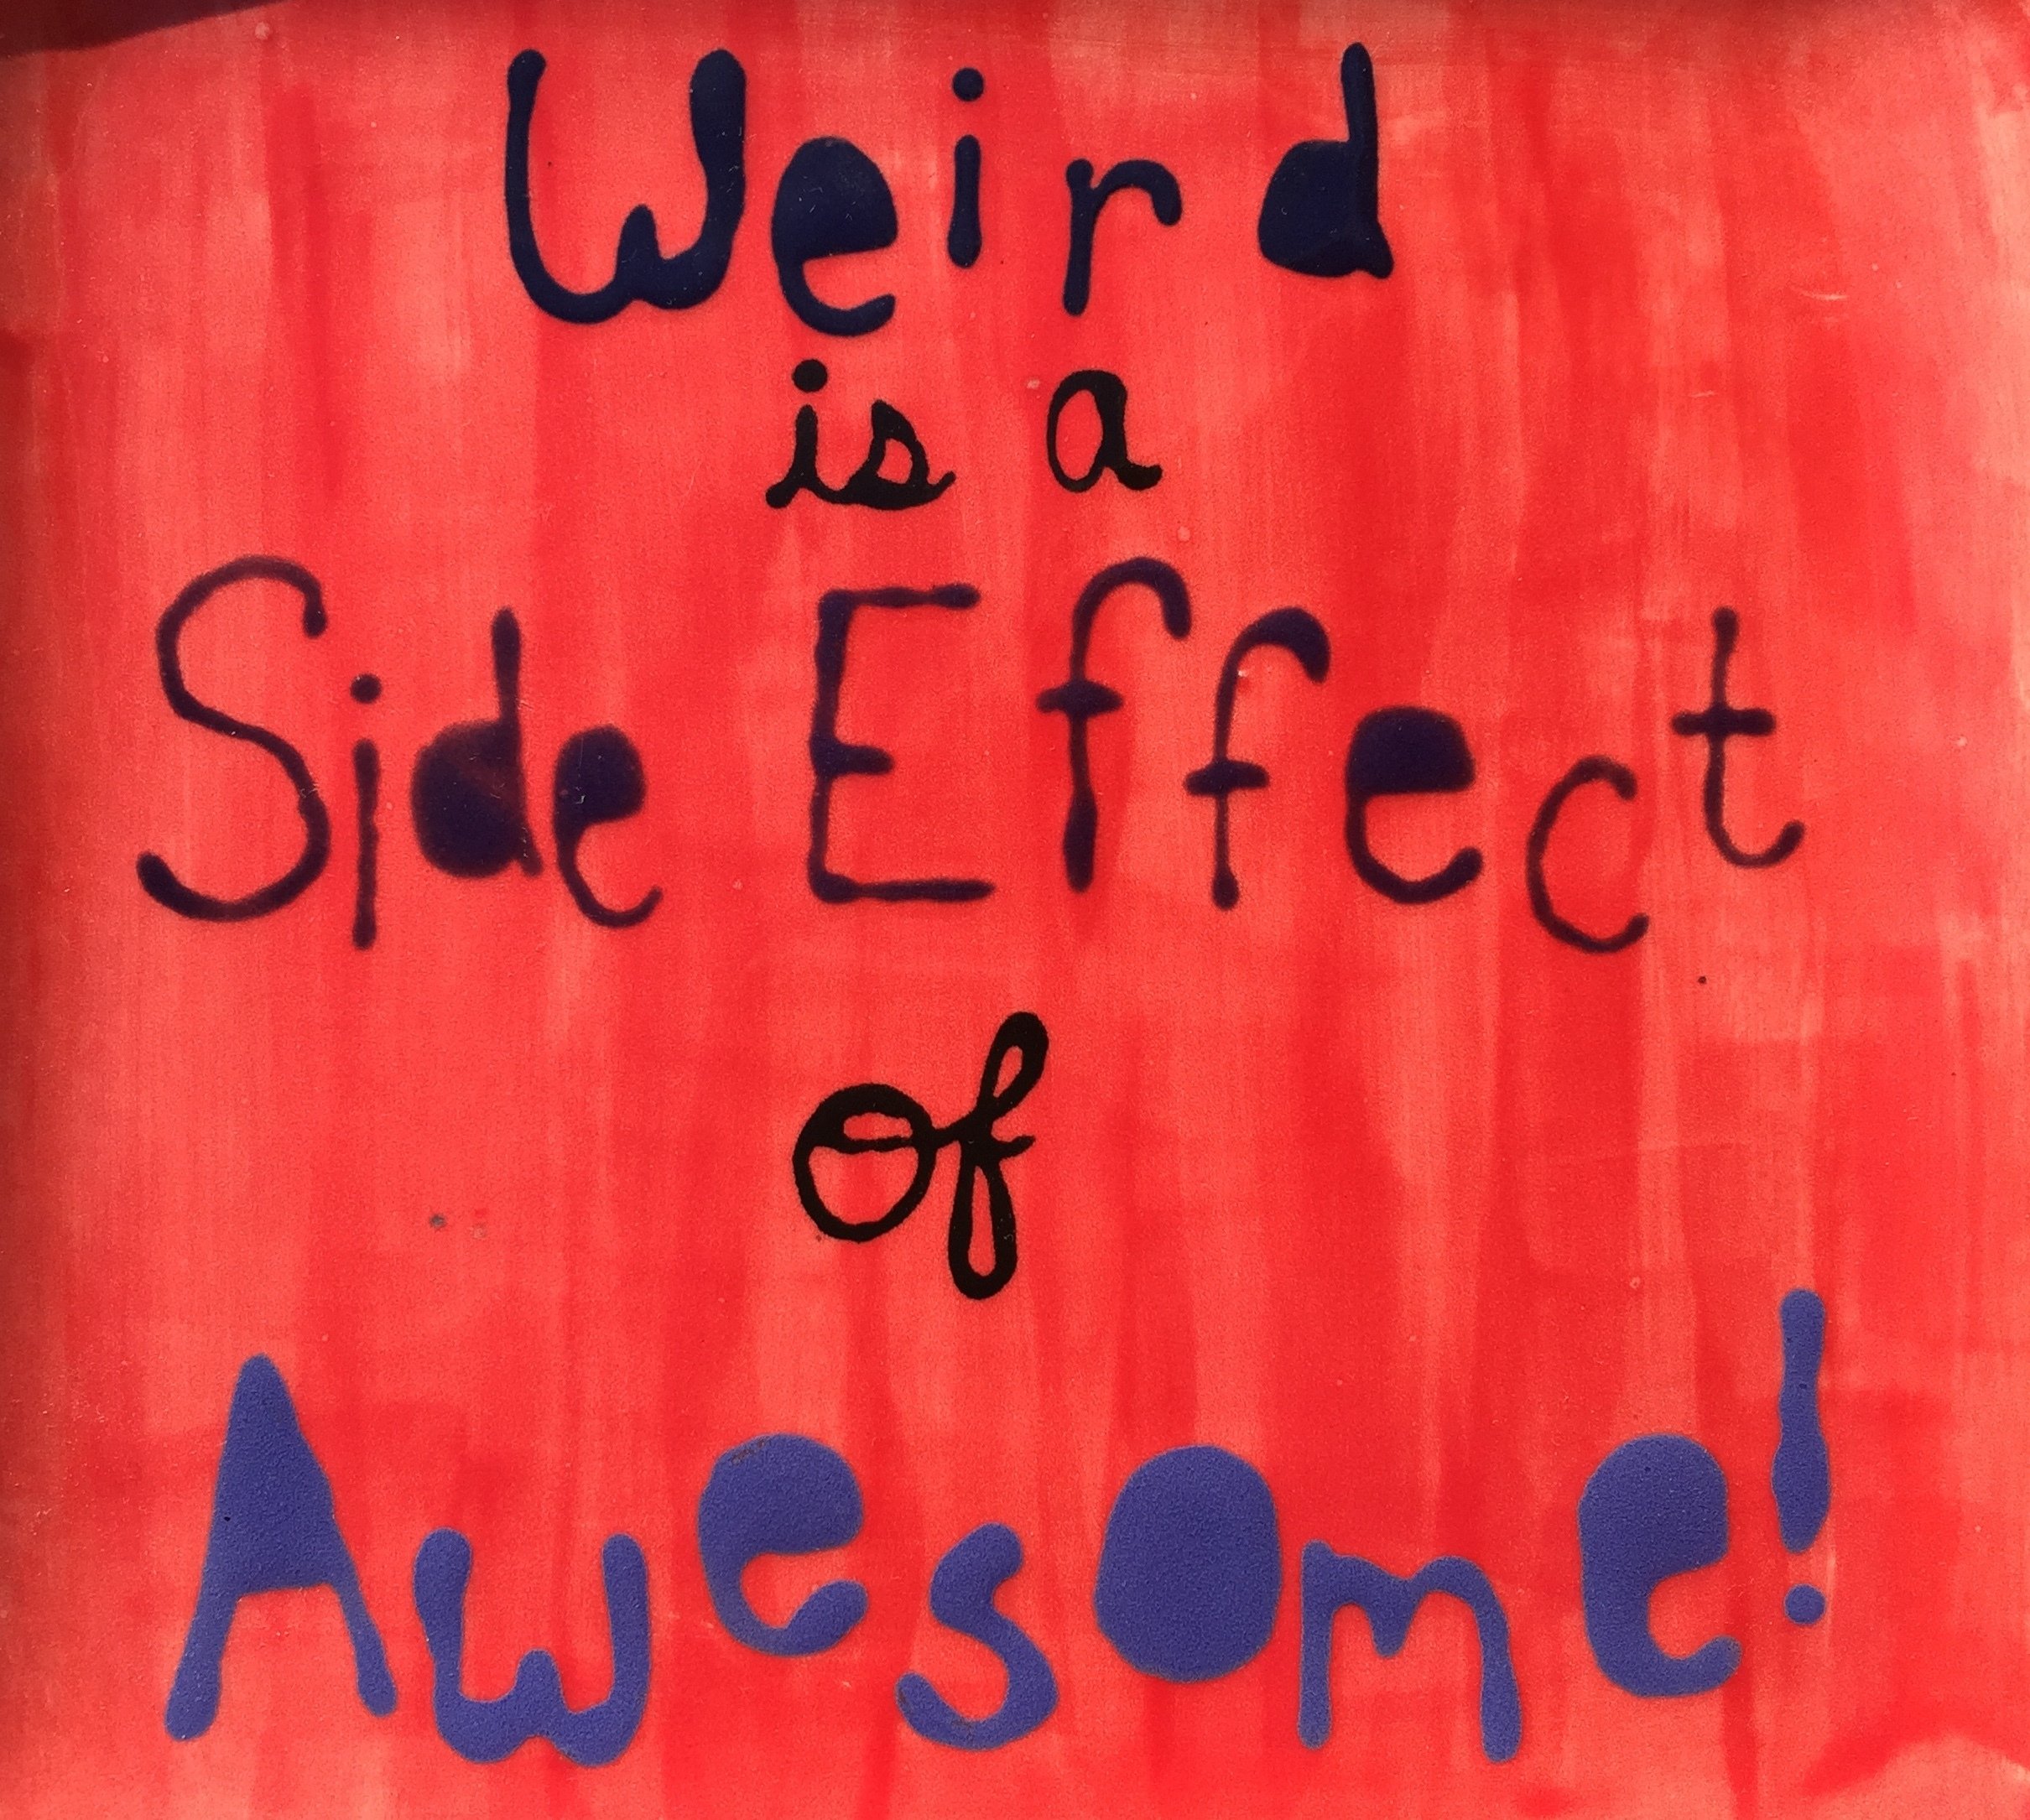 Weird
is a
Side Effect
of
Awesome!